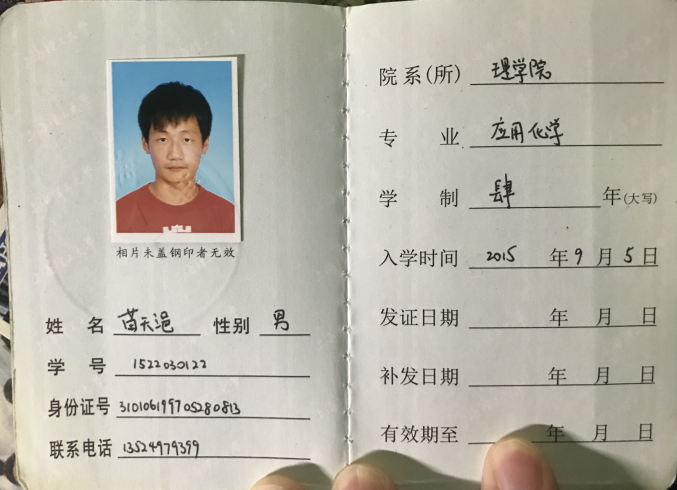 相片未盖钢印者无效
姓 名 苗天浥 性别 男
学 号 1522030122
身份证号 310106199705280813
联系电话 13524979399
院系(所) 理学院
专 业 应用化学
学 制 肆 年(大写)
入学时间 2015 年 9 月 5 日
发证日期 年 月 日
补发日期 年 月 日
有效期至 年 月 日